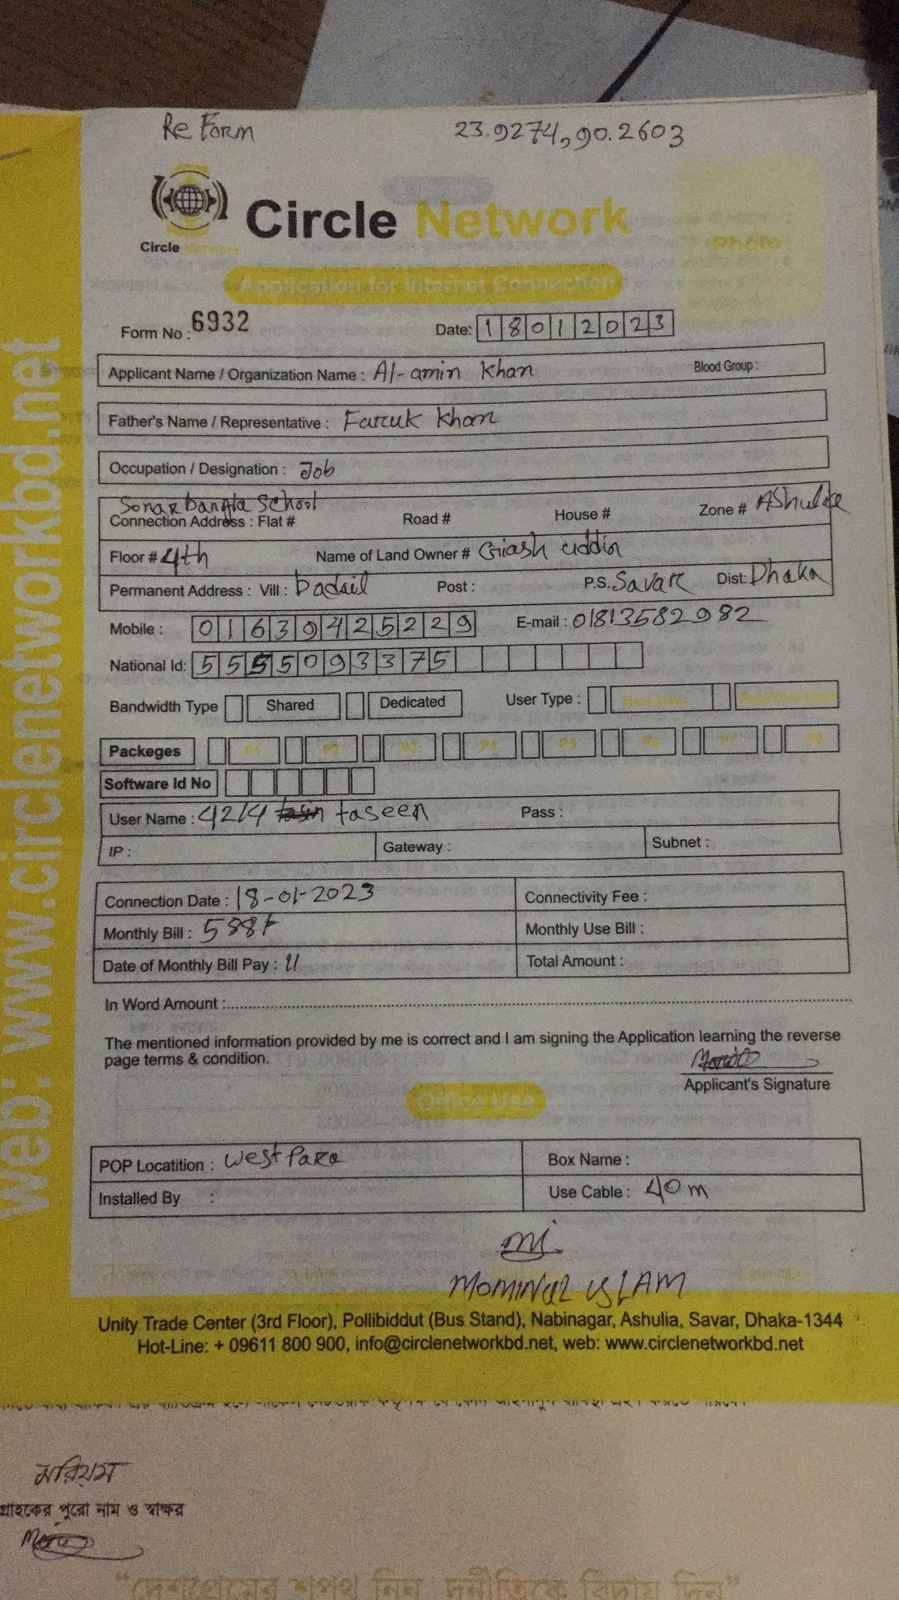 Re Form
23.9274,90.2603
Circle Network
Circle Network
Photo
Application for Internet Connection
Form No : 6932
Date: 18012023
Applicant Name / Organization Name : Al-amin Khan Blood Group :
Father's Name / Representative : Faruk Khan
Occupation / Designation : Job
Sonar bangla School
Connection Address : Flat # Road # House # Zone # AShulia
Floor # 4th Name of Land Owner # Giash uddin
Permanent Address : Vill : Badail Post : P.S. Savar Dist: Dhaka
Mobile : 01639425229 E-mail : 01813582982
National Id: 5555093375
Bandwidth Type Shared Dedicated User Type : New User
Packeges P1 P2 P3 P4 P5 P6 P7 P8
Software Id No
User Name : 4214 taseen Pass :
IP : Gateway : Subnet :
Connection Date : 18-01-2023 Connectivity Fee :
Monthly Bill : Monthly Use Bill :
Date of Monthly Bill Pay : Total Amount :
In Word Amount :
The mentioned information provided by me is correct and I am signing the Application learning the reverse
page terms & condition.
Applicant's Signature
Office Use
POP Locatition : West Para Box Name :
Installed By : Use Cable : 40 m
MOMINUL ISLAM
Unity Trade Center (3rd Floor), Pollibiddut (Bus Stand), Nabinagar, Ashulia, Savar, Dhaka-1344
Hot-Line: + 09611 800 900, info@circlenetworkbd.net, web: www.circlenetworkbd.net
web: www.circlenetworkbd.net
মরিয়ম
গ্রাহকের পুরো নাম ও স্বাক্ষর
“দেশপ্রেমের শপথ নিন, দুর্নীতিকে বিদায় দিন”